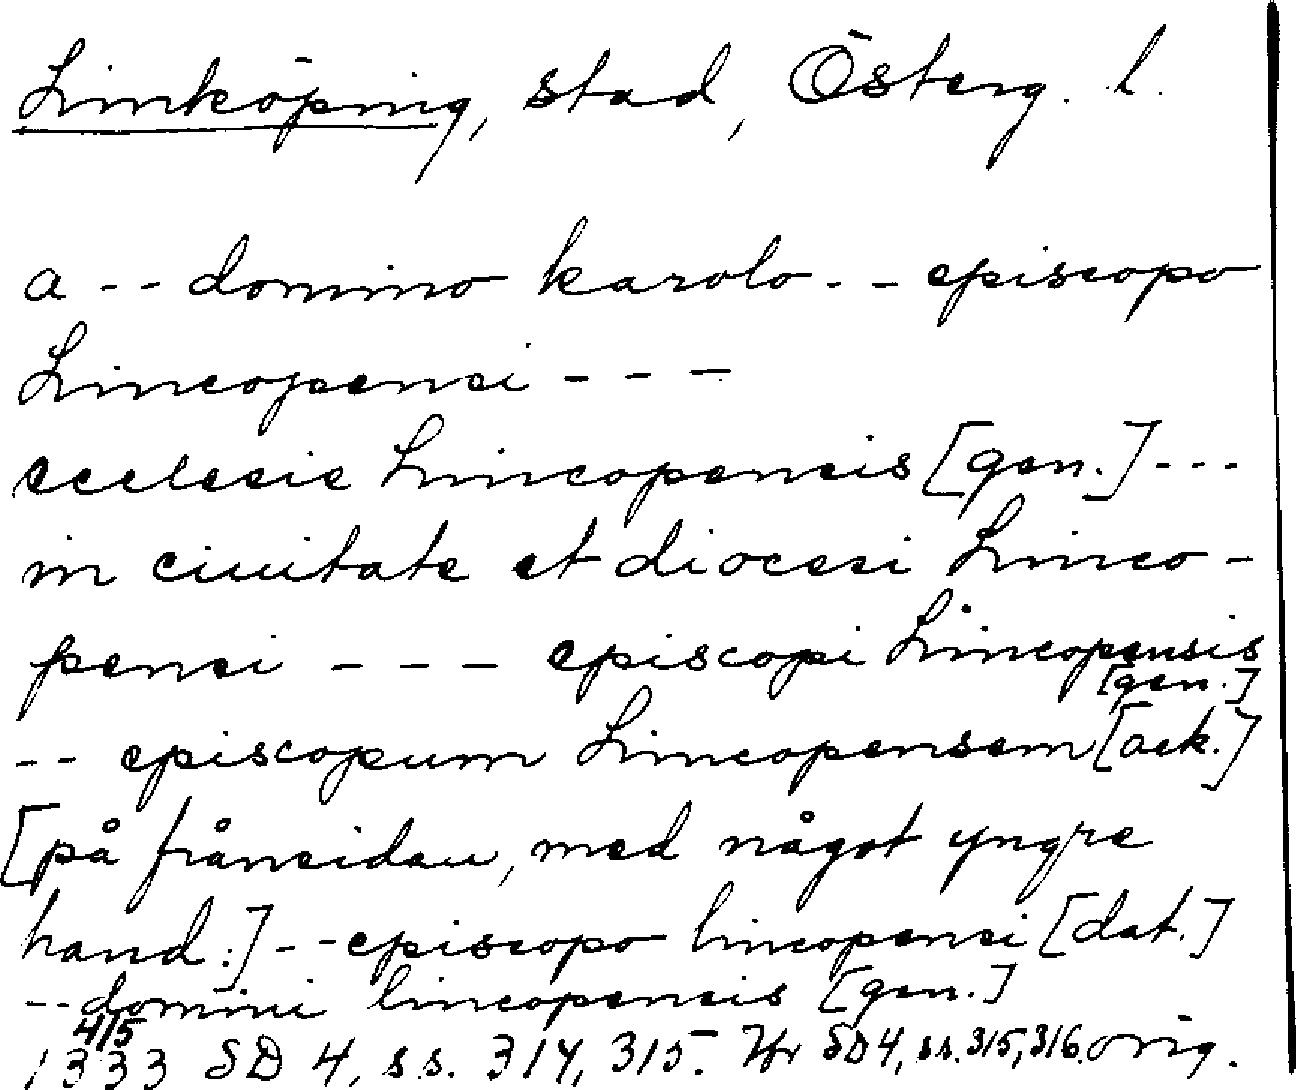 Linköping, stad, Österg. l.
a -- domino karolo -- episcopo
Lincopensi ---
ecclesie Lincopensis [gen.] ---
in ciuitate et diocesi Linco-
pensi --- episcopi Lincopensis
[gen.]
-- episcopum Lincopensem [ack.]
[på frånsidan, med något yngre
hand:] -- episcopo lincopensi [dat.]
-- domini lincopensis [gen.]
4/5
1333 SD 4, s.s. 314, 315. SD 4, s.s. 315, 316. orig.